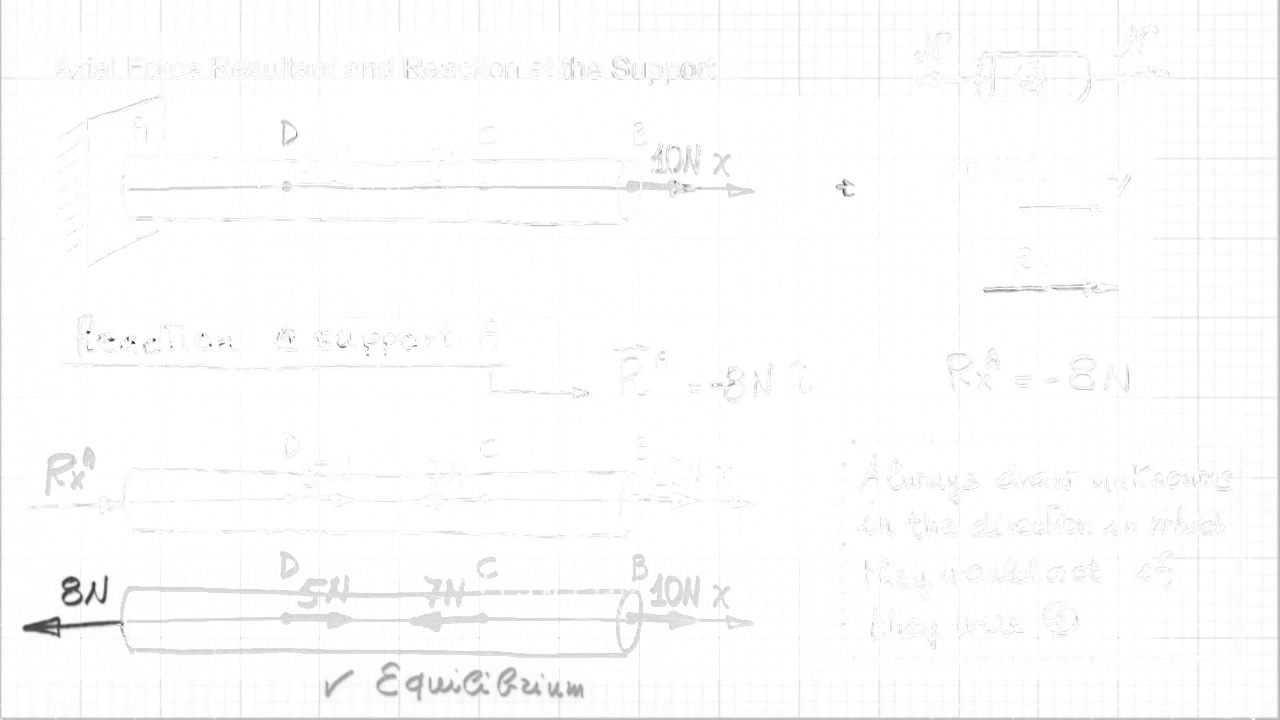 Axial Force Resultant and Reaction at the Support
A D C B
10N x
Reaction @ support A
= -8N
Rxᴬ = -8N
Rxᴬ D C B
Always draw unknowns
in the direction in which
they would act if
they were ⊕
8N D 5N 7N C B 10N x
✓ Equilibrium